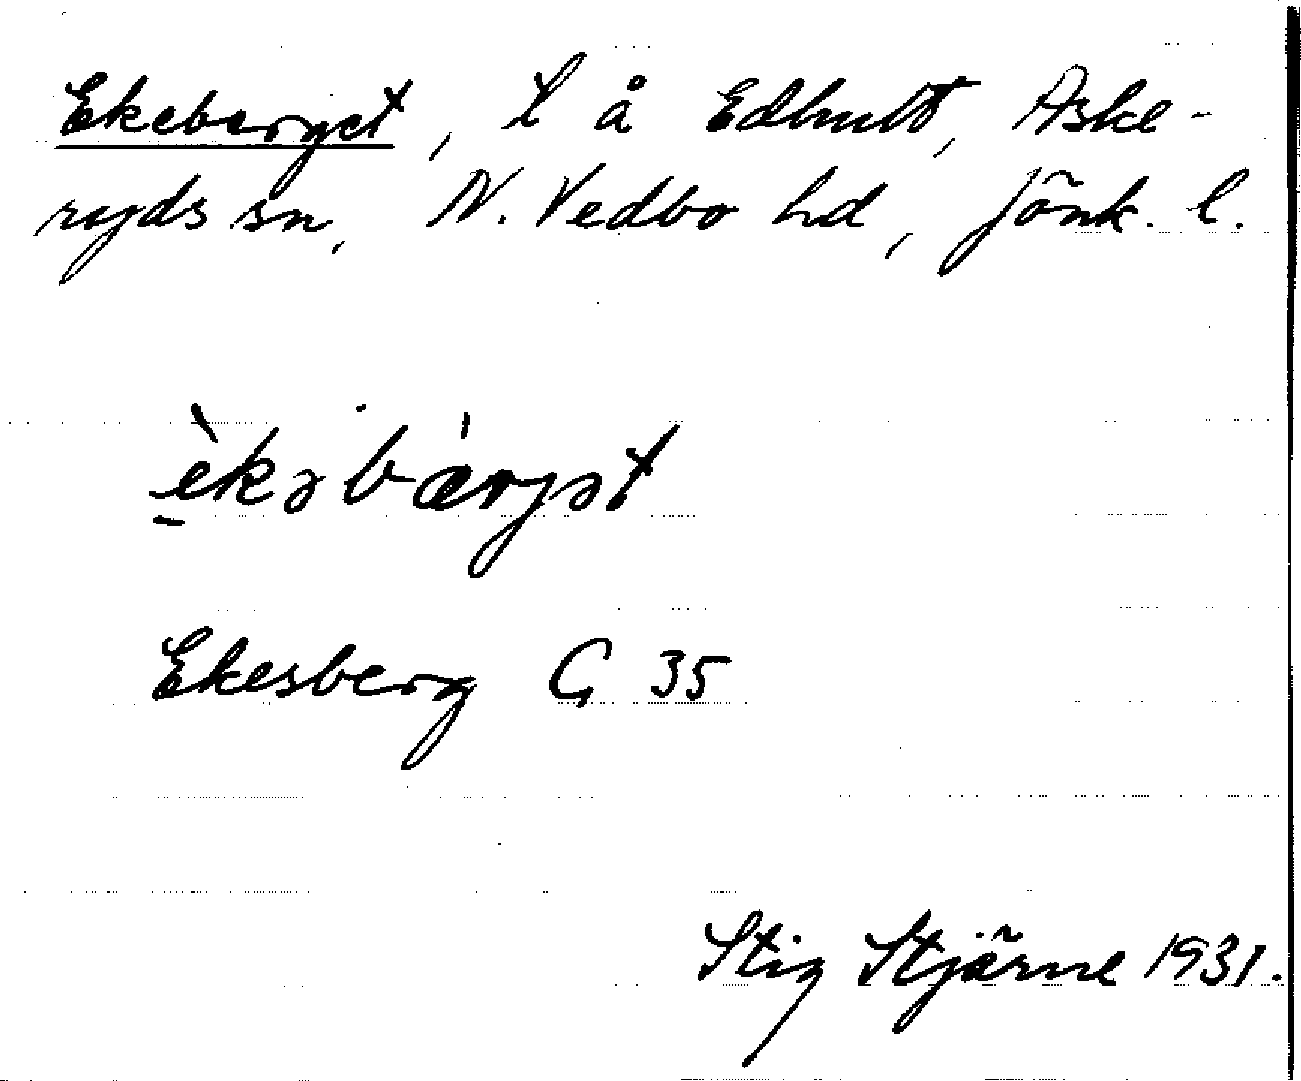 Ekeberget, l å Edhult, Aske-
ryds sn, N. Vedbo hd, Jönk. l.
èkəbærjət
Ekesberg G 35
Stig Stjärne 1931.